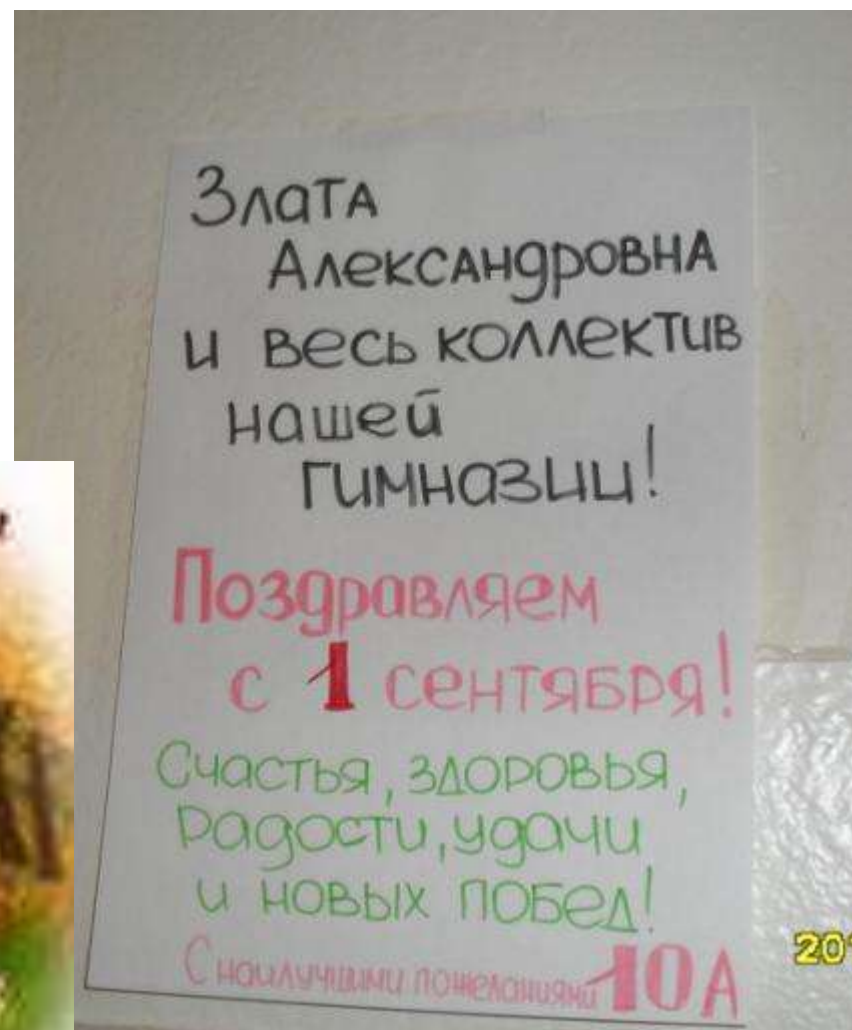 Злата
Александровна
и весь коллектив
нашей
гимназии!
Поздравляем
с 1 сентября!
Счастья, здоровья,
радости, удачи
и новых побед!
С наилучшими пожеланиями 10А